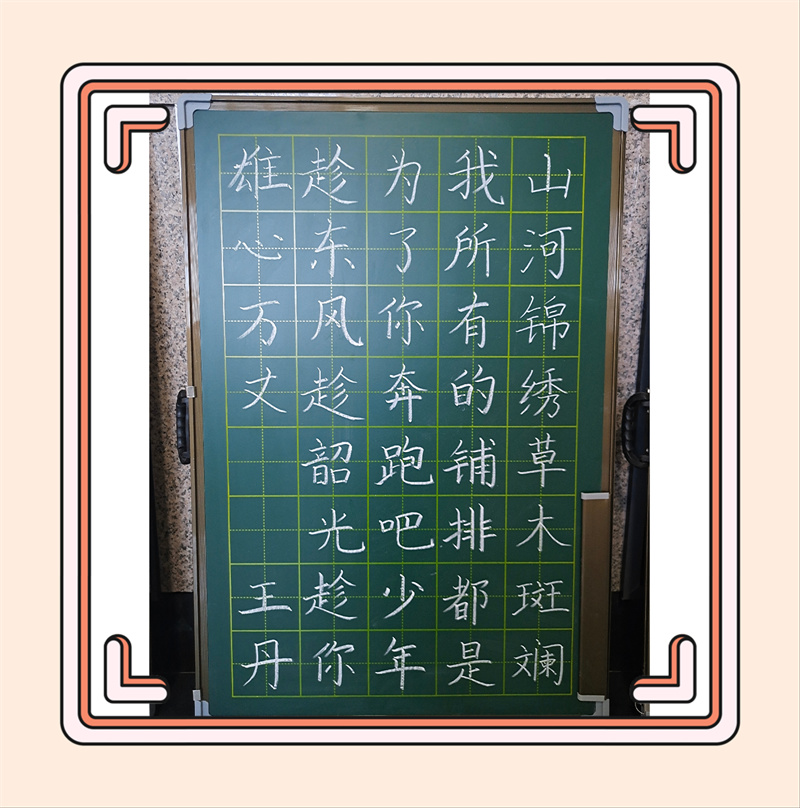 山河锦绣草木斑斓
我所有的铺排都是
为了你奔跑吧少年
趁东风趁韶光趁你
雄心万丈 王丹